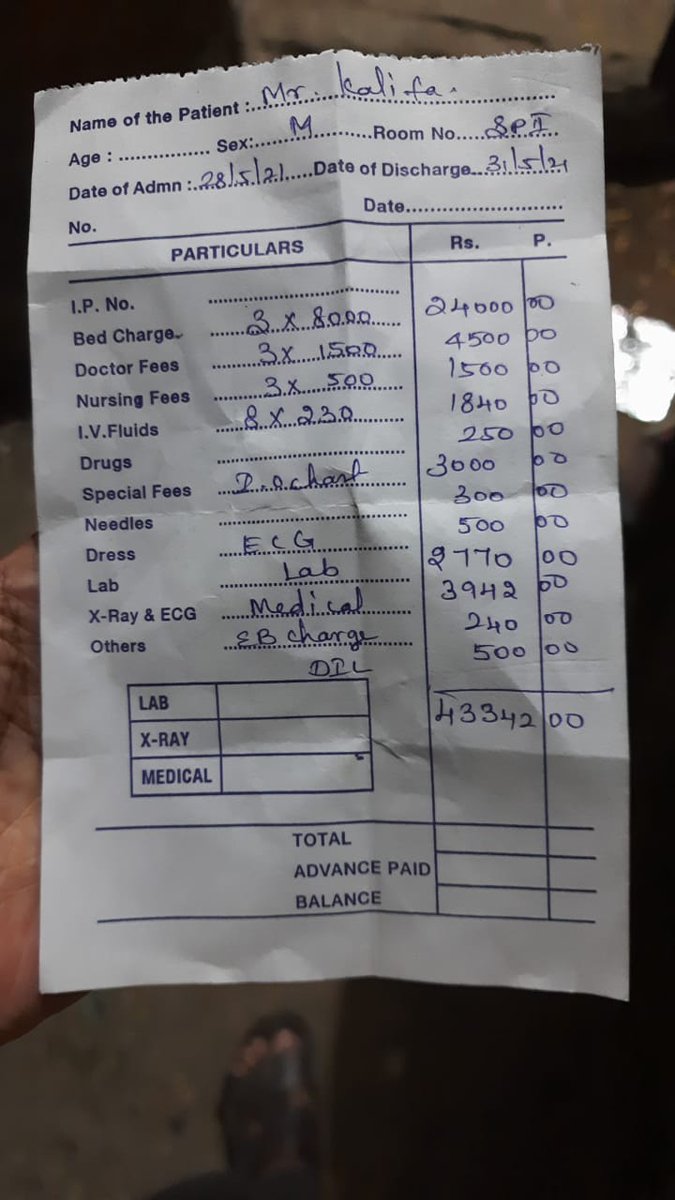 Name of the Patient : Mr. Kalifa.
Age : ............... Sex: M Room No. SP II
Date of Admn : 28/5/21 Date of Discharge 31/5/21
No. Date
PARTICULARS Rs. P.
I.P. No.
Bed Charge 3 x 8000 24000 00
Doctor Fees 3 x 1500 4500 00
Nursing Fees 3 x 500 1500 00
I.V.Fluids 8 x 230 1840 00
Drugs 250 00
Special Fees 3000 00
Needles 300 00
Dress ECG 500 00
Lab Lab 2770 00
X-Ray & ECG Medical 3942 00
Others EB charge 240 00
500 00
LAB 43342 00
X-RAY
MEDICAL
TOTAL
ADVANCE PAID
BALANCE